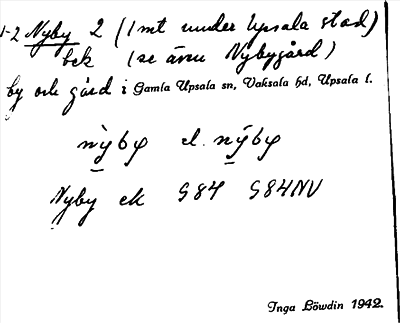 1-2 Nyby 2 (1 mt under Upsala stad)
bek (se även Nybygård)
by och gård i Gamla Upsala sn, Vaksala hd, Upsala l.
nỳby el. nýby
Nyby ek S84 S84NV
Inga Löwdin 1942.